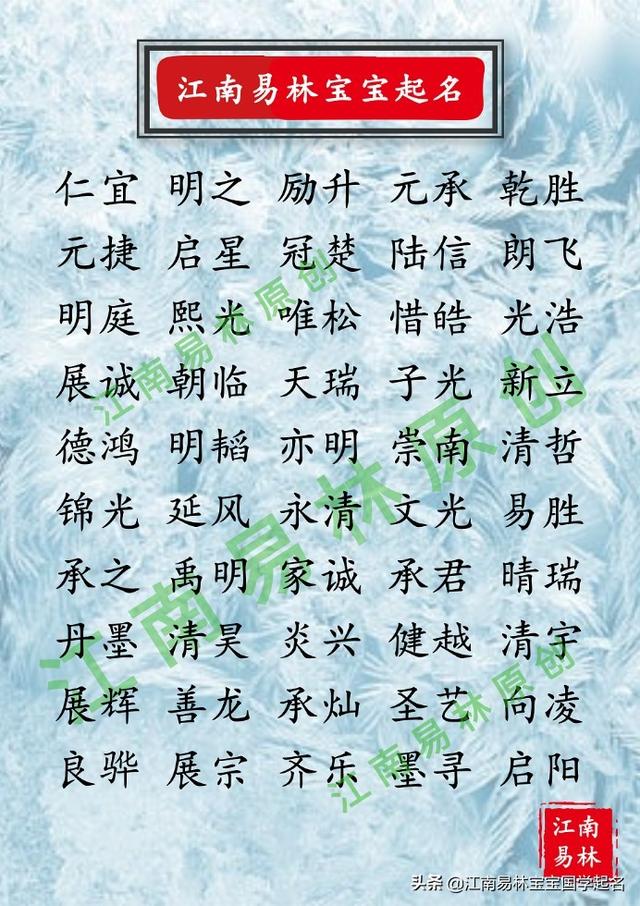 江南易林宝宝起名
仁宜 明之 励升 元承 乾胜
元捷 启星 冠楚 陆信 朗飞
明庭 熙光 唯松 惜皓 光浩
展诚 朝临 天瑞 子光 新立
德鸿 明韬 亦明 崇南 清哲
锦光 延风 永清 文光 易胜
承之 禹明 家诚 承君 晴瑞
丹墨 清昊 炎兴 健越 清宇
展辉 善龙 承灿 圣艺 向凌
良骅 展宗 齐乐 墨寻 启阳
江南易林原创
江南易林原创
江南易林原创
江南
易林
头条 @江南易林宝宝国学起名